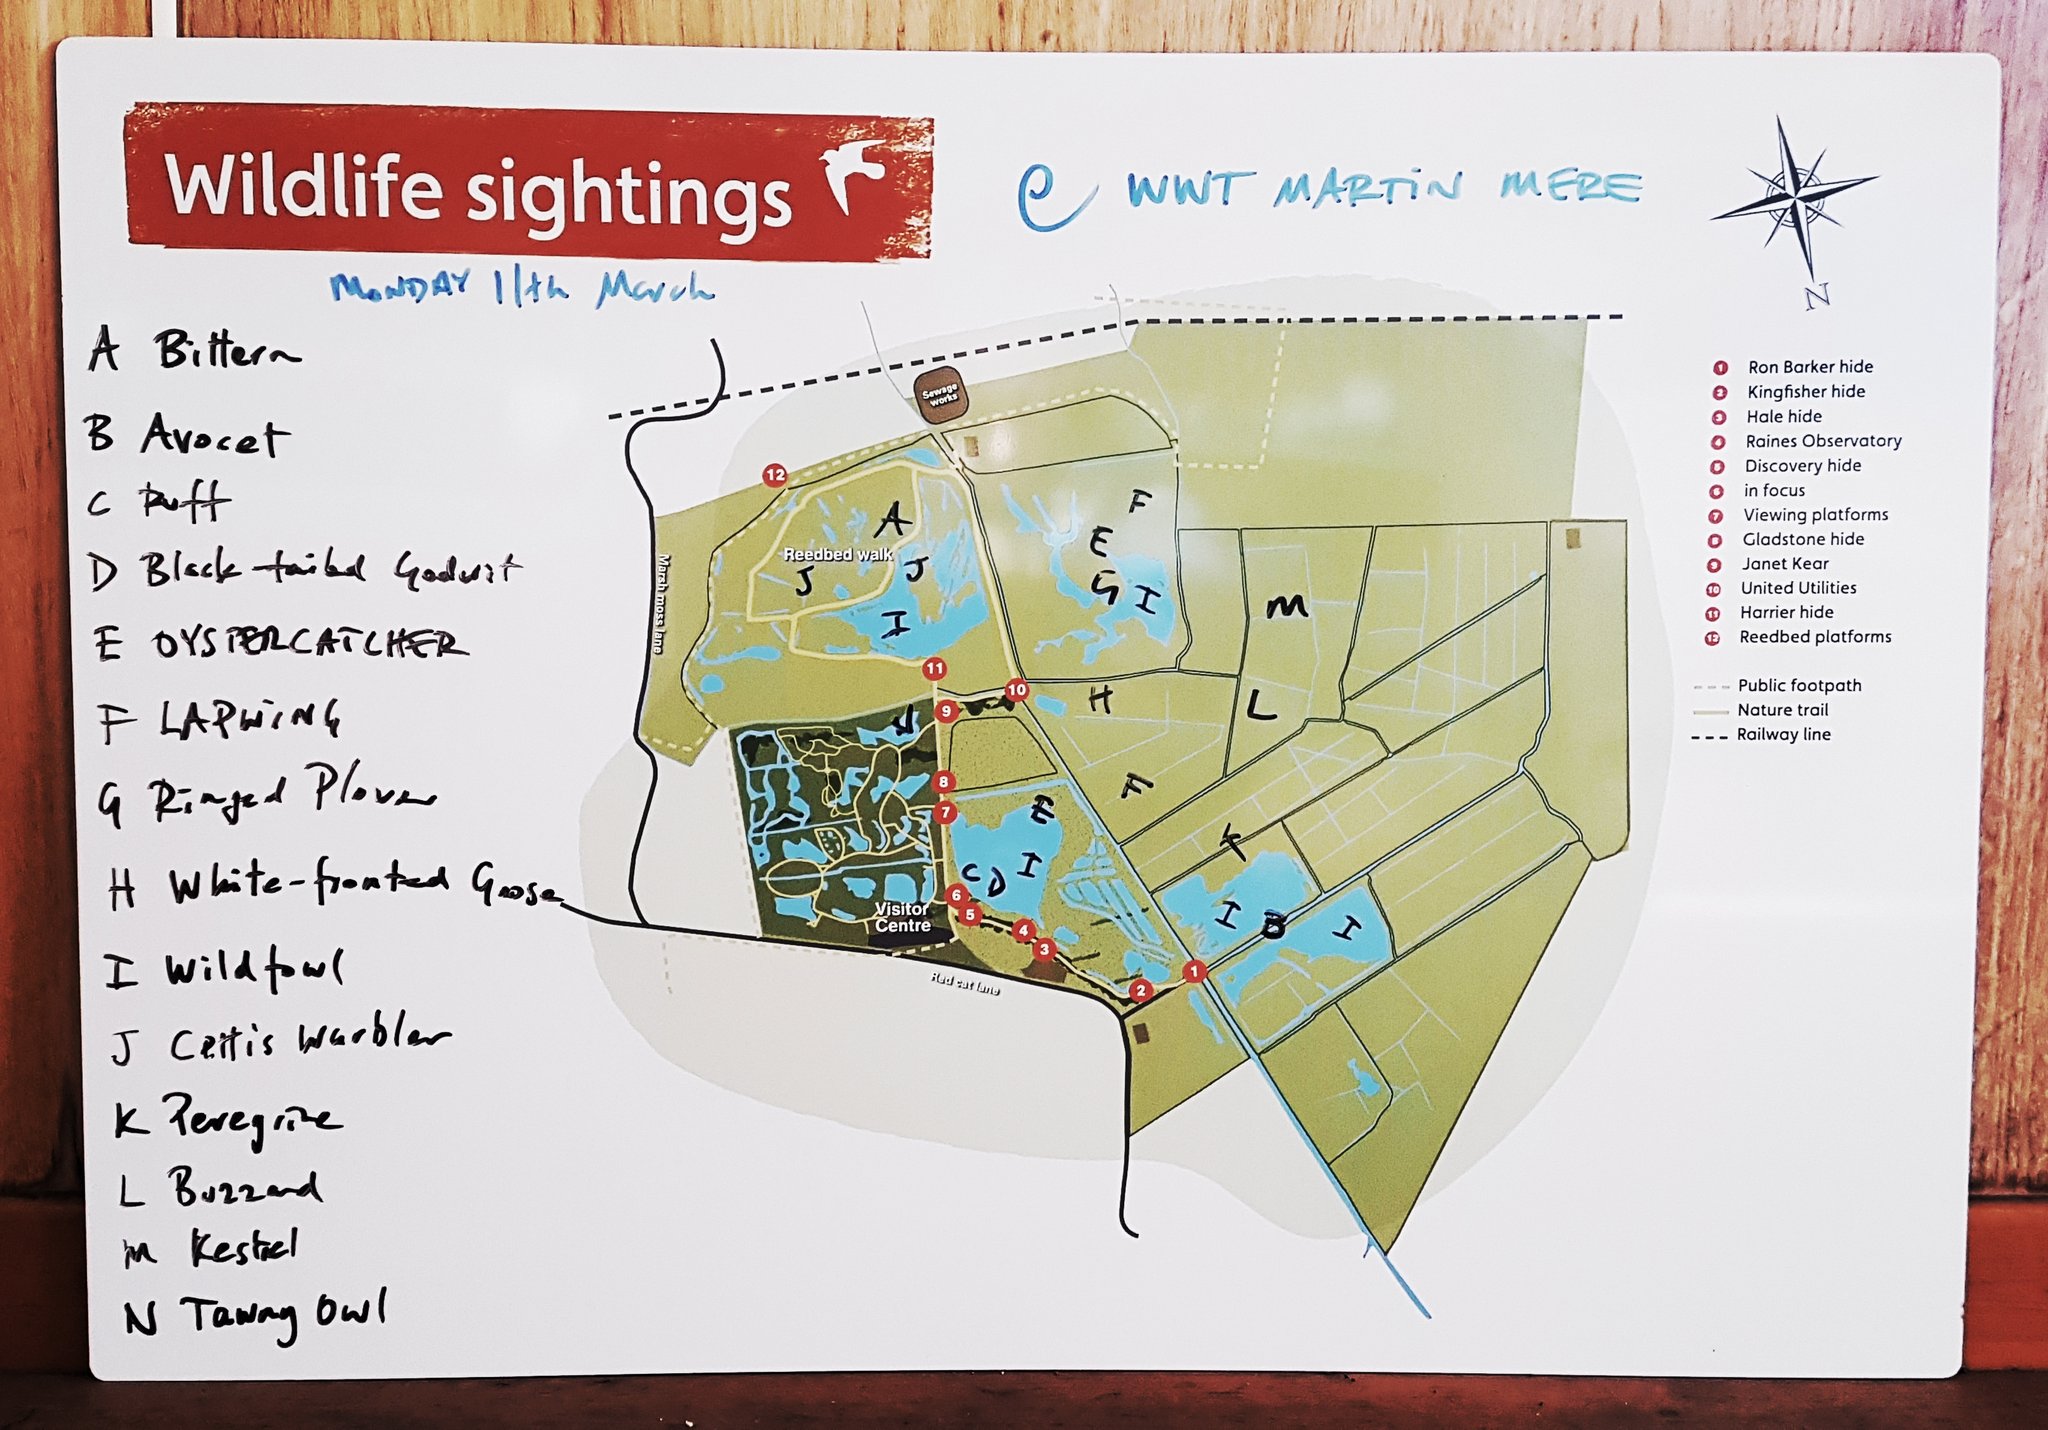 Wildlife sightings
@ WWT MARTIN MERE
MONDAY 11th March
N
A Bittern
B Avocet
C Ruff
D Black-tailed Godwit
E OYSTERCATCHER
F LAPWING
G Ringed Plover
H White-fronted Goose
I Wildfowl
J Cettis Warbler
K Peregrine
L Buzzard
M Kestrel
N Tawny Owl
Sewage
works
12
A
F
E
Reedbed walk
J
J
G
I
M
I
Marsh moss lane
11
10
H
L
9
N
8
F
7
E
K
I
C D
6
Visitor
Centre
5
I
B
I
4
3
1
2
Red cat lane
1 Ron Barker hide
2 Kingfisher hide
3 Hale hide
4 Raines Observatory
5 Discovery hide
6 in focus
7 Viewing platforms
8 Gladstone hide
9 Janet Kear
10 United Utilities
11 Harrier hide
12 Reedbed platforms
Public footpath
Nature trail
Railway line